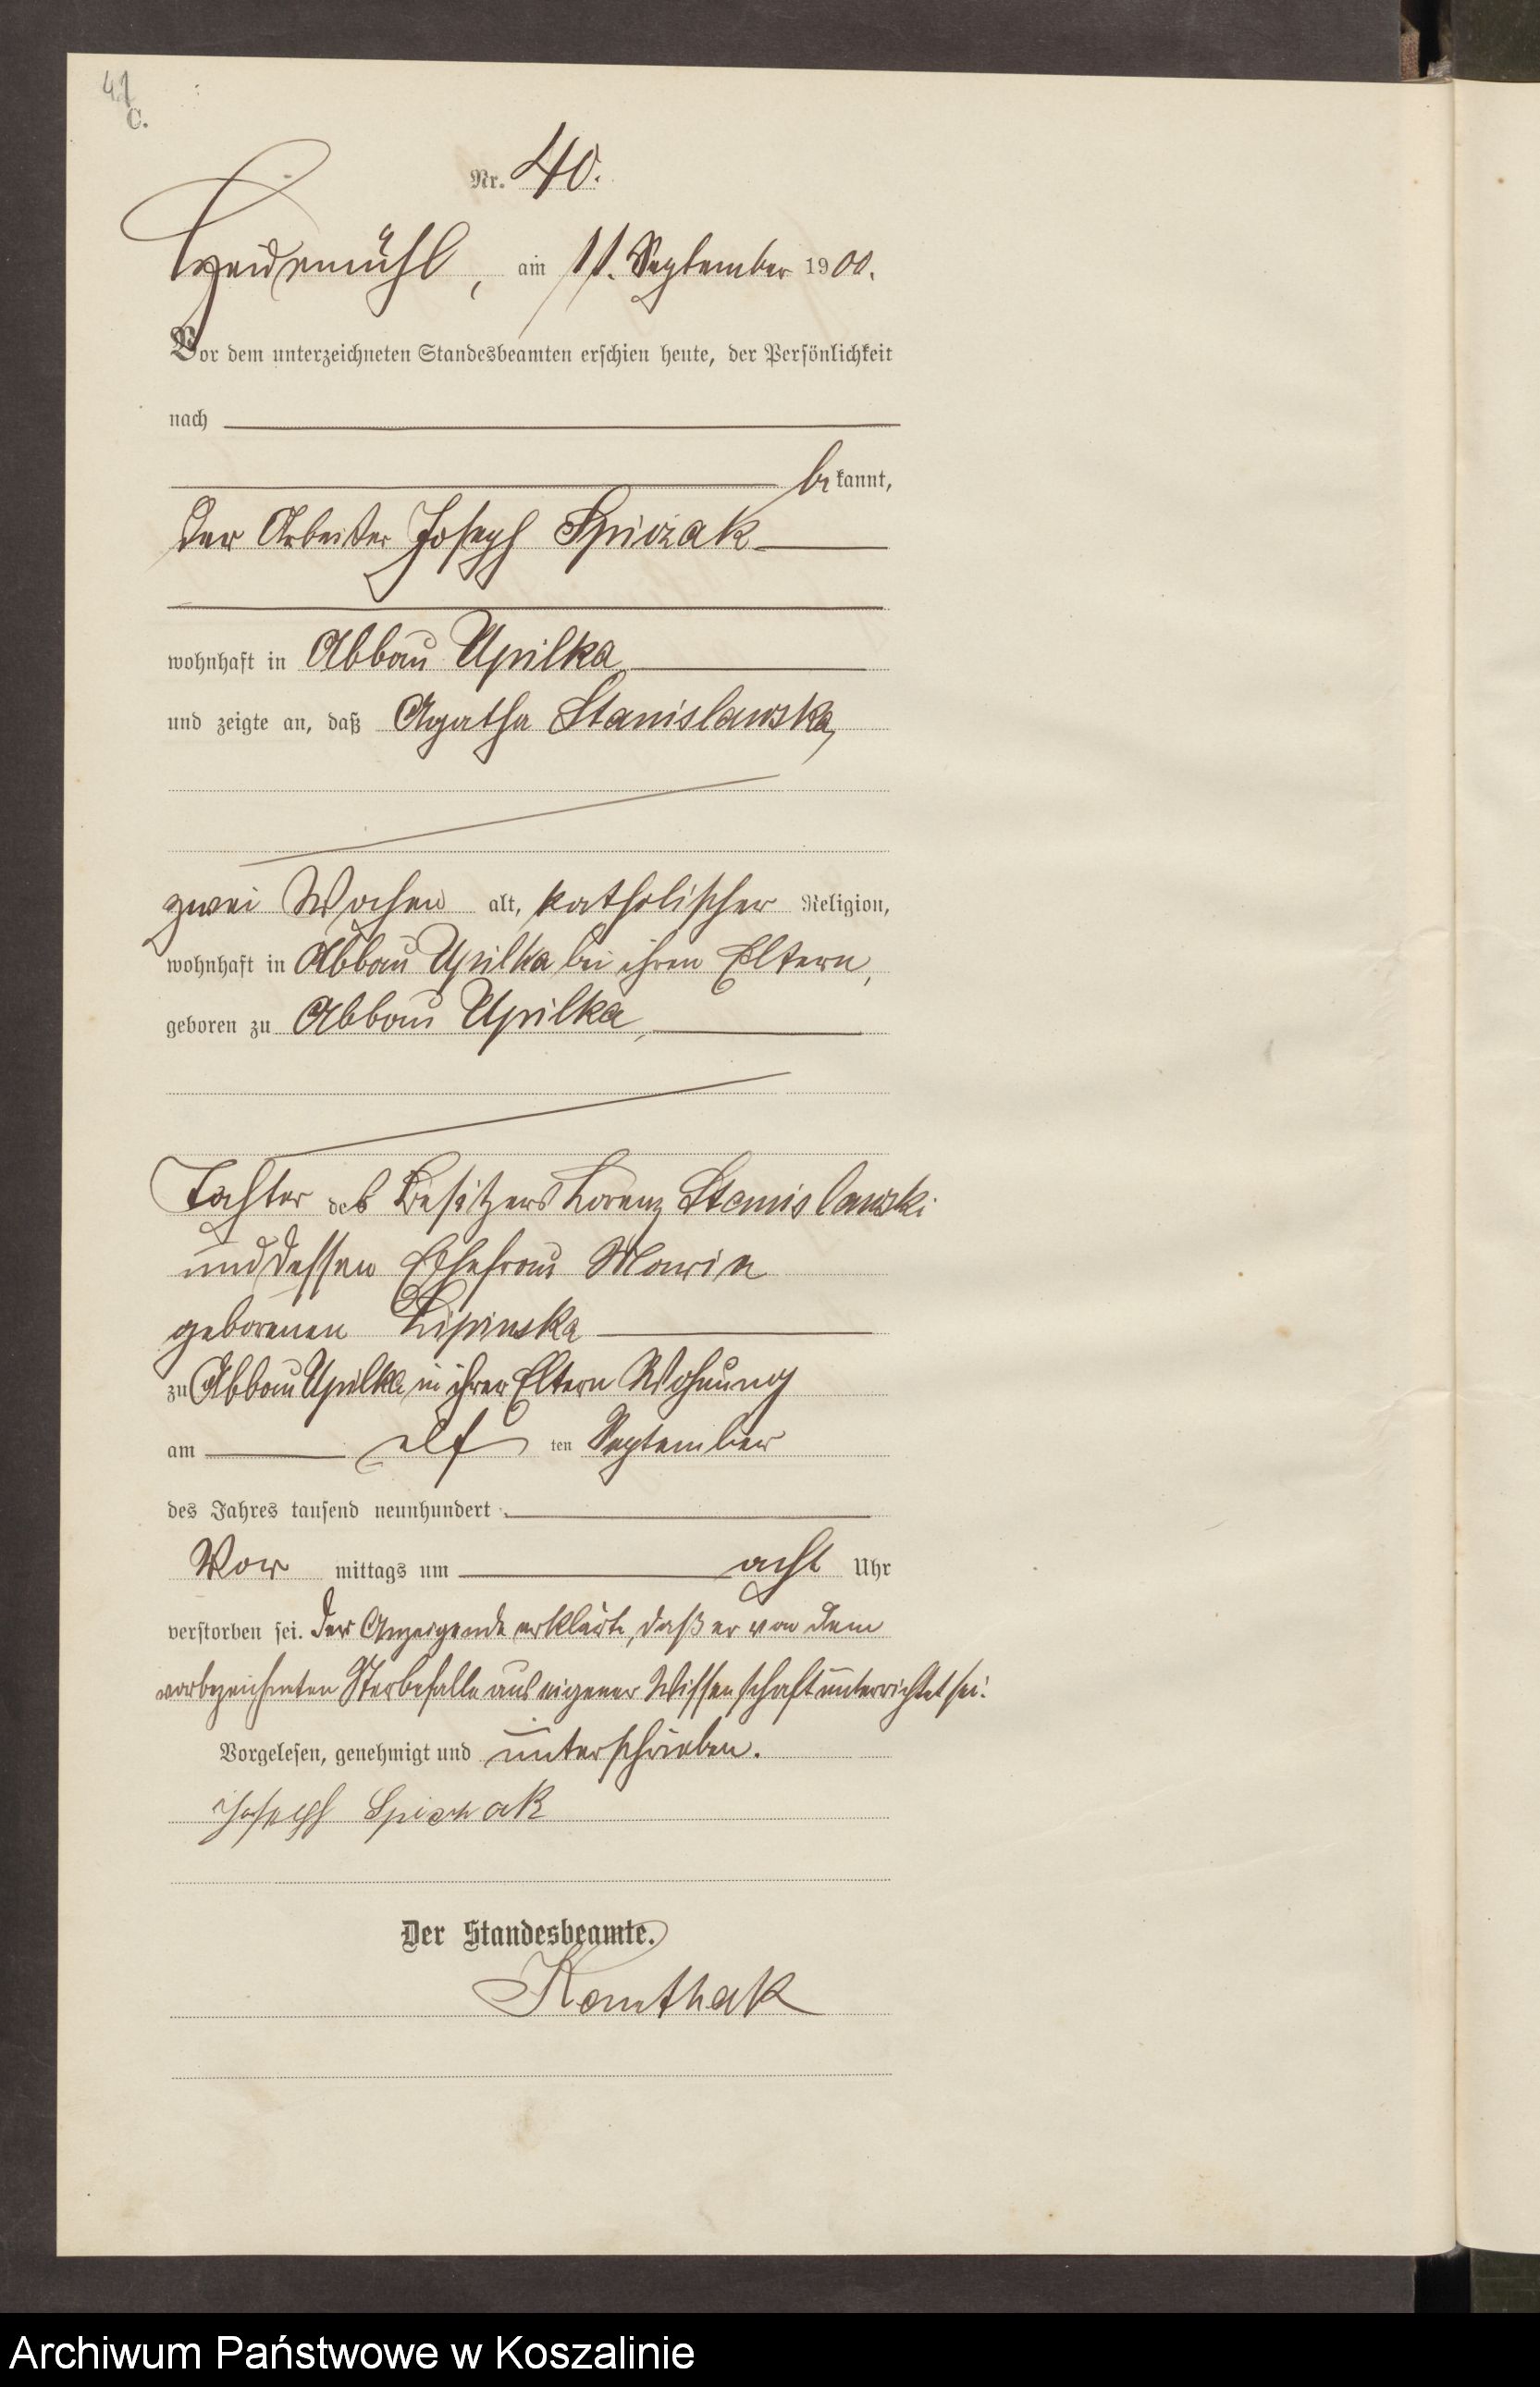 41
C.
Nr. 40.
Heidemühl, am 11. September 1900.
Vor dem unterzeichneten Standesbeamten erschien heute, der Persönlichkeit
nach
bekannt,
der Arbeiter Joseph Spiczak
wohnhaft in Abbau Upilka
und zeigte an, daß Agatha Stanislawska,
zwei Wochen alt, katholischer Religion,
wohnhaft in Abbau Upilka bei ihren Eltern,
geboren zu Abbau Upilka,
Tochter des Besitzers Lorenz Stanislawski
und dessen Ehefrau Maria
geborenen Lipinska
zu Abbau Upilka in ihrer Eltern Wohnung
am elf ten September
des Jahres tausend neunhundert
Vor mittags um acht Uhr
verstorben sei. Der Anzeigende erklärte, daß er von dem
vorbezeichneten Sterbefalle aus eigener Wissenschaft unterrichtet sei.
Vorgelesen, genehmigt und unterschrieben.
Joseph
Der Standesbeamte.
Archiwum Państwowe w Koszalinie